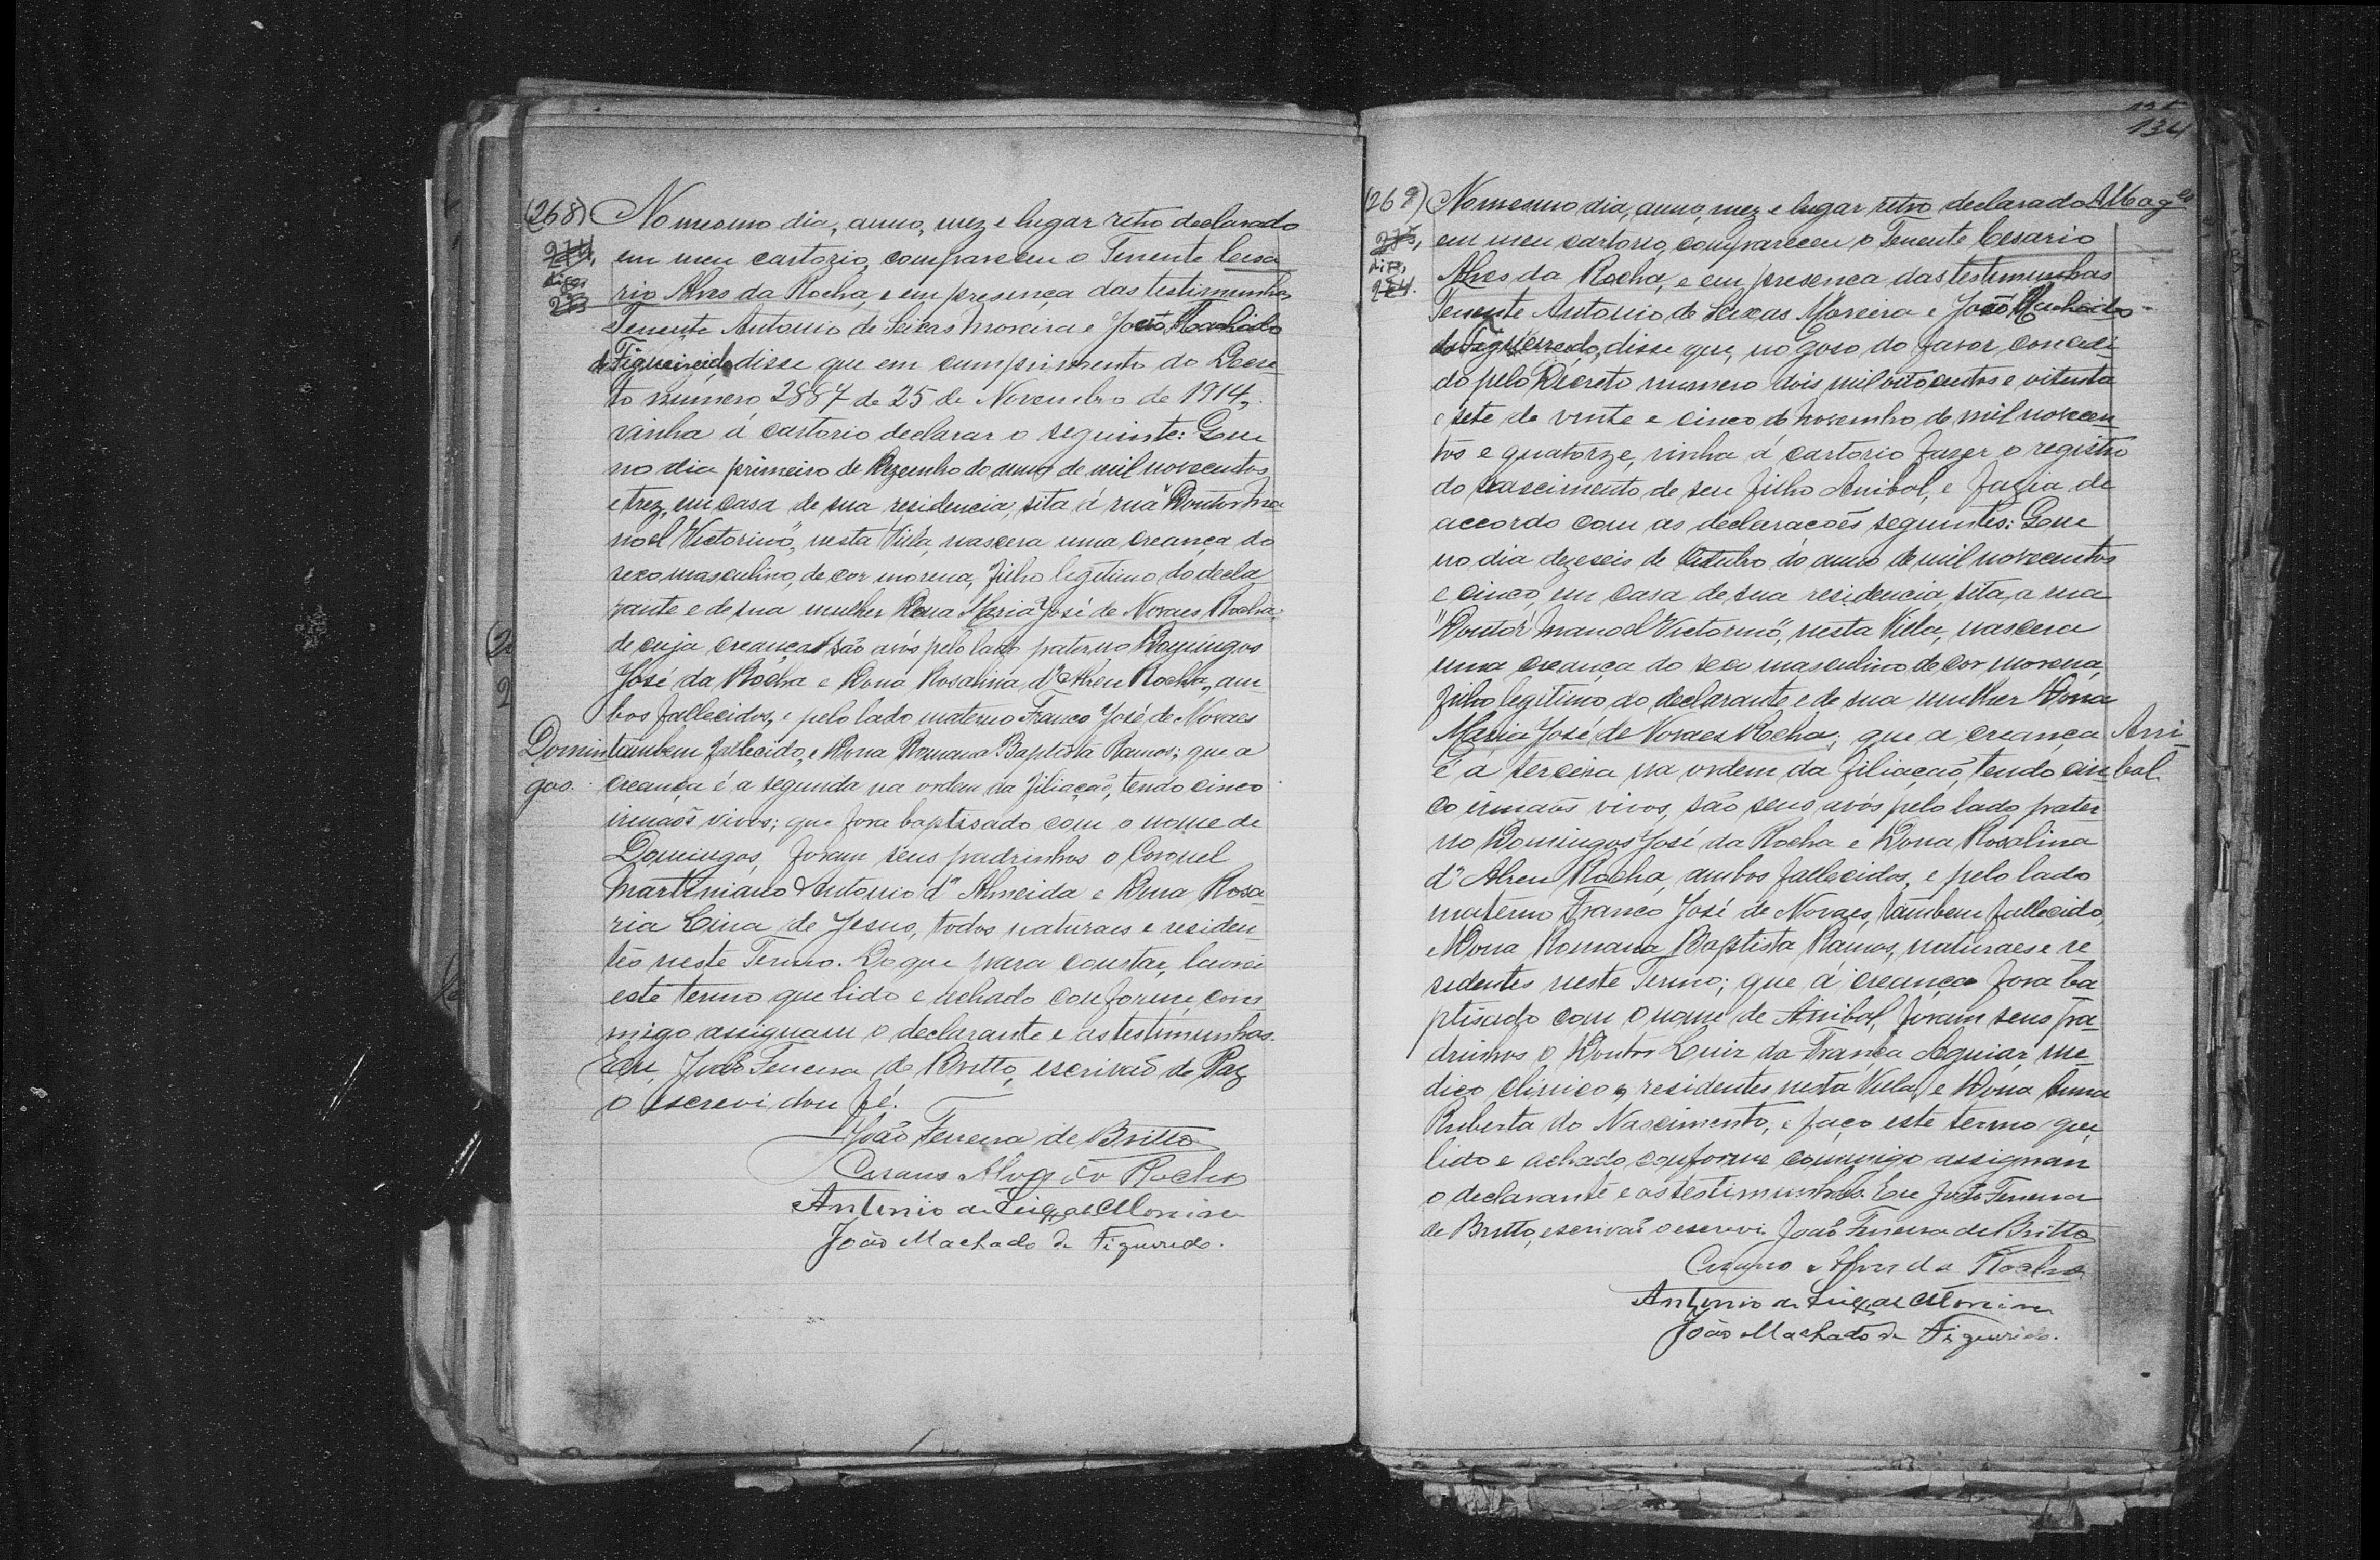 (268) No mesmo dia, anno, mez e lugar retro declarado
274, em meu cartorio, compareceu o Tenente Cesa
digo rio Alves da Rocha, e em presença das testimunhas
273
Tenente Antonio de Seixas Moreira e João Machado
de Figueiredo disse que em cumprimento do Decre
to numero 2887 de 25 de Novembro de 1914,
vinha á cartorio declarar o seguinte: Que
no dia primeiro de Dezembro do anno de mil novecentos
e trez, em casa de sua residencia, sita á rua "Doutor Ma
noel Victorino", nesta Villa, nascera uma creança do
sexo masculino, de cor morena, filho legitimo do decla
rante e de sua mulher Dona Maria José de Novaes Rocha;
de cuja creança são avós pelo lado paterno Domingos
José da Rocha e Dona Rosalina d'Abreu Rocha, am
bos fallecidos, e pelo lado materno Franco José de Novaes
Domin tambem fallecido, e Dona Romana Baptista Ramos; que a
gos. creança é a segunda na ordem da filiação, tendo cinco
irmaõs vivos; que fora baptisado com o nome de
Domingos, foram seus padrinhos o Coronel
Martiniano Antonio d'Almeida e Dona Rosa
ria Lina de Jesus, todos naturaes e residen
tes neste Termo. Do que para constar, lavrei
este termo que lido e achado conforme, com
migo assignam o declarante e as testimunhas.
Eu, João Ferreira de Britto, escrivaõ de Paz
o escrevi, dou fé.
João Ferreira de Britto
Cesario Alves da Rocha
Antonio de Seixas Moreira
João Machado de Figueiredo.
134
(269) No mesmo dia, anno, mez e lugar retro declarado
275, em meu cartorio, compareceu o Tenente Cesario
digo, Alves da Rocha, e em presença das testimunhas
274.
Tenente Antonio de Seixas Moreira e João Machado
de Figueiredo, disse que, no goso do favor conced
do pelo Decreto numero dois mil oitocentos e oitenta
e sete de vinte e cinco de Novembro de mil novecen
tos e quatorze, vinha á cartorio fazer o registro
do nascimento de seu filho Anibal, e fazia de
accordo com as declaraçoẽs seguintes: Que
no dia dezeseis de Outubro do anno de mil novecentos
e cinco, em casa de sua residencia, sita a rua
"Doutor Manoel Victorino", nesta Villa, nascera
uma creança do sexo masculino de cor morena,
filho legitimo do declarante e de sua mulher Dona
Maria José de Novaes Rocha; que a creança Ani
é a terceira na ordem da filiação, tendo cin bal
co irmaõs vivos, são seus avós pelo lado pater
no Domingos José da Rocha e Dona Rosalina
d'Abreu Rocha, ambos fallecidos, e pelo lado
materno Franco José de Novaes, tambem fallecido,
e Dona Romana Baptista Ramos, naturaes e re
sidentes neste Termo; que á creança fora ba
ptisado com o nome de Anibal, foram seus pa
drinhos o Doutor Luiz da França Aguiar, me
dico clinico, residentes nesta Villa, e Dona Anna
Ruberta do Nascimento, e faço este termo que,
lido e achado conforme commigo assignam
o declarante e as testimunhas. Eu João Ferreira
de Britto, escrivaõ o escrevi. João Ferreira de Britto
Cesario Alves da Rocha
Antonio de Seixas Moreira
João Machado de Figueiredo.